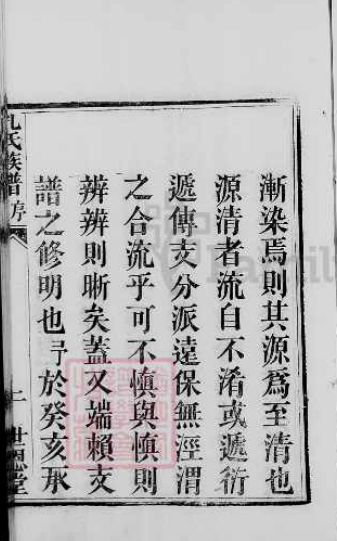 漸染焉則其源為至清也
源清者流自不淆或遞衍
遞傳支分派遠保無涇渭
之合流乎可不慎與慎則
辨辨則晰矣蓋又端賴支
譜之修明也予於癸亥承
氏族譜 序
二 世恩堂